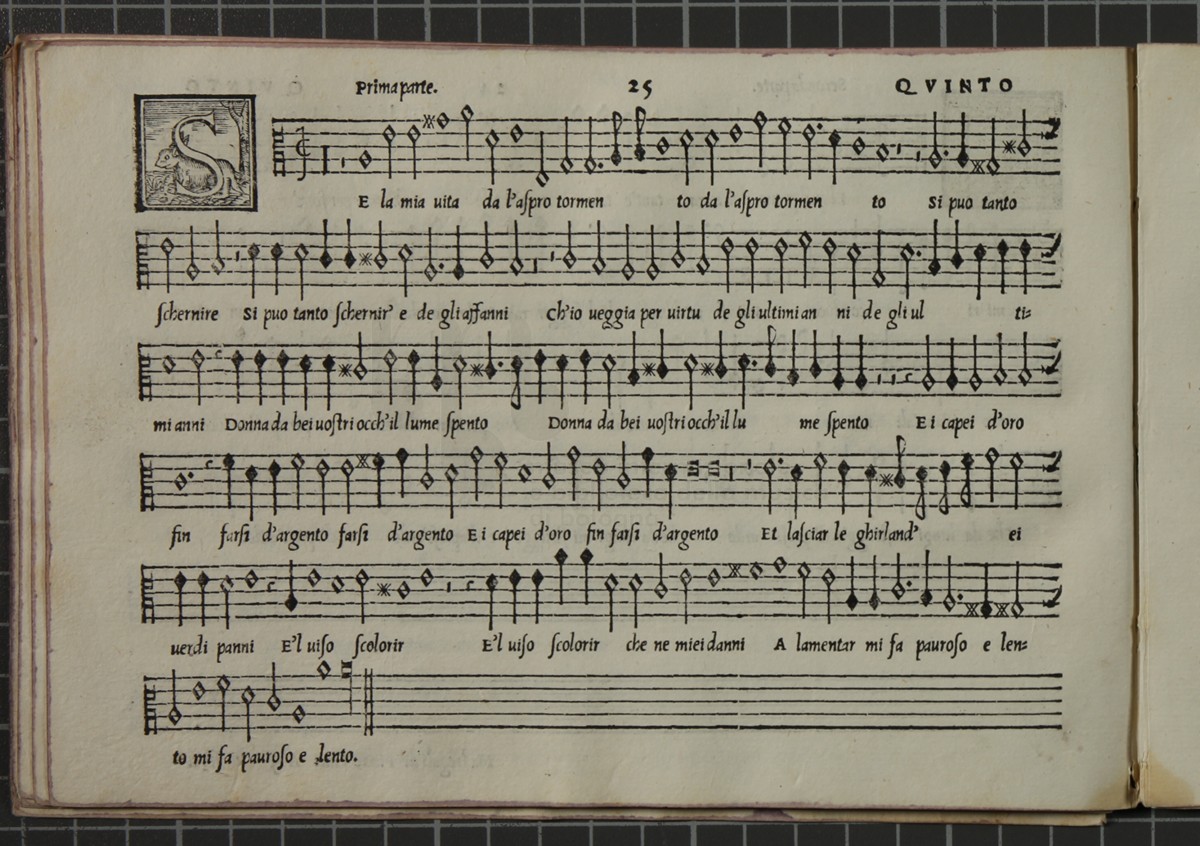 Prima parte. 25 QVINTO
SE la mia uita da l'aspro tormen to da l'aspro tormen to Si puo tanto
schernire Si puo tanto schernir' e de gli affanni Ch'io ueggia per uirtu de gli ultimi an ni de gli ul ti=
mi anni Donna da bei uostri occh'il lume spento Donna da bei uostri occh'il lu me spento E i capei d'oro
fin farsi d'argento farsi d'argento E i capei d'oro fin farsi d'argento Et lasciar le ghirland' ei
uerdi panni E'l uiso scolorir E'l uiso scolorir che ne miei danni A lamentar mi fa pauroso e len=
to mi fa pauroso e lento.